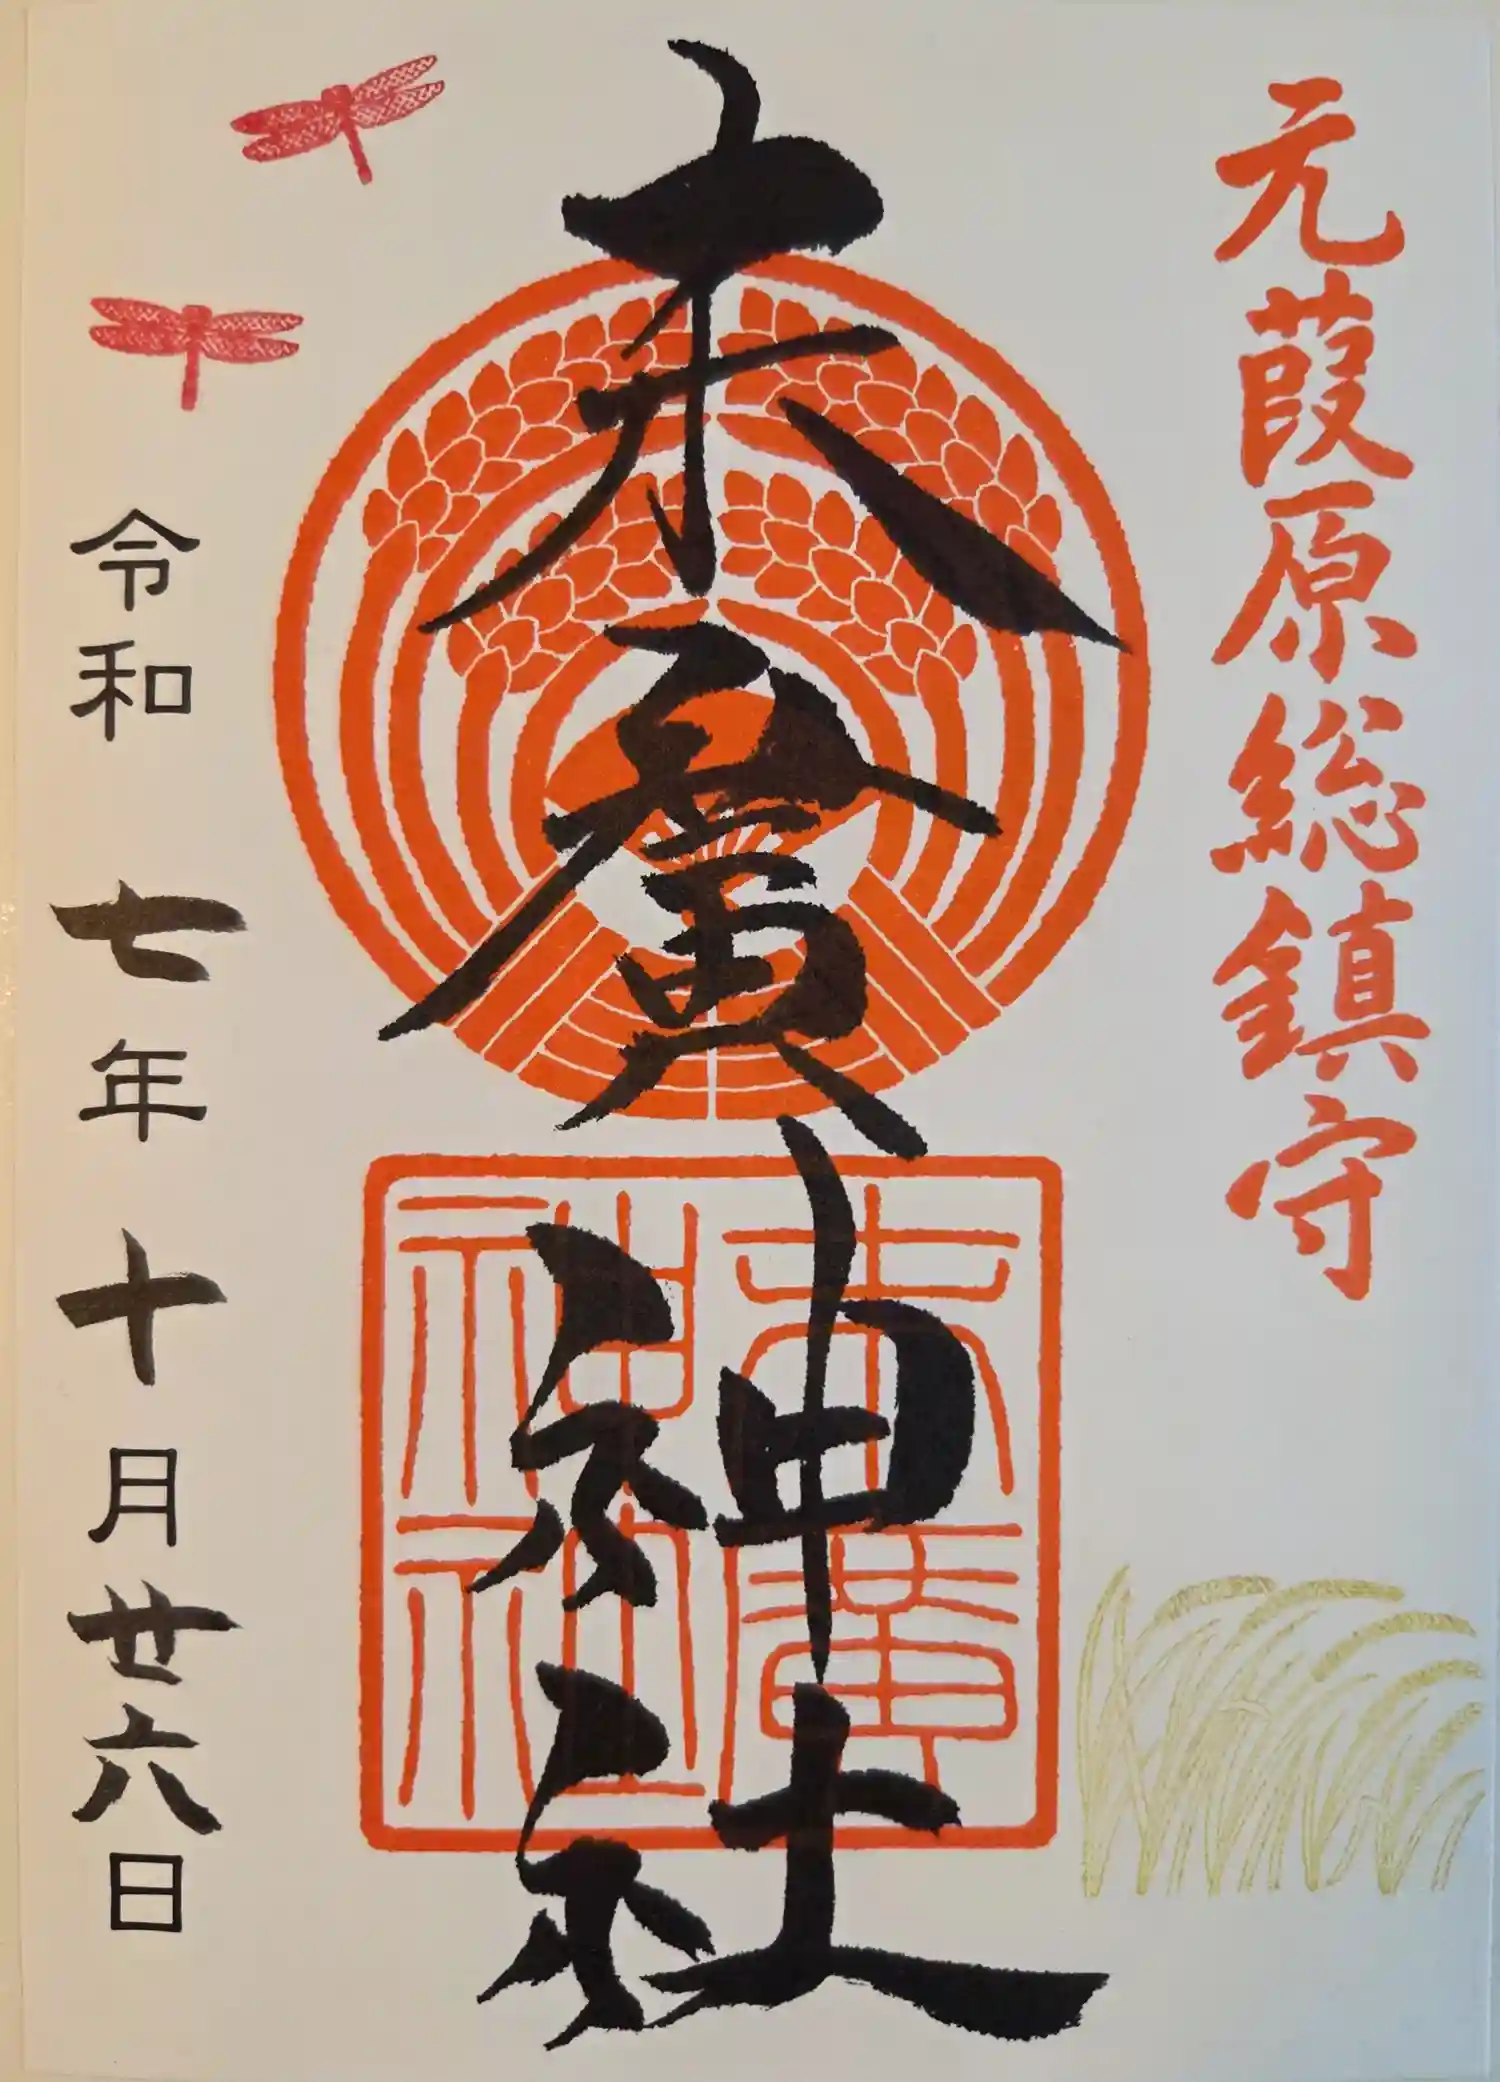 元葭原総鎮守
末廣神社
末廣神社
令和 七年 十月 廿六日